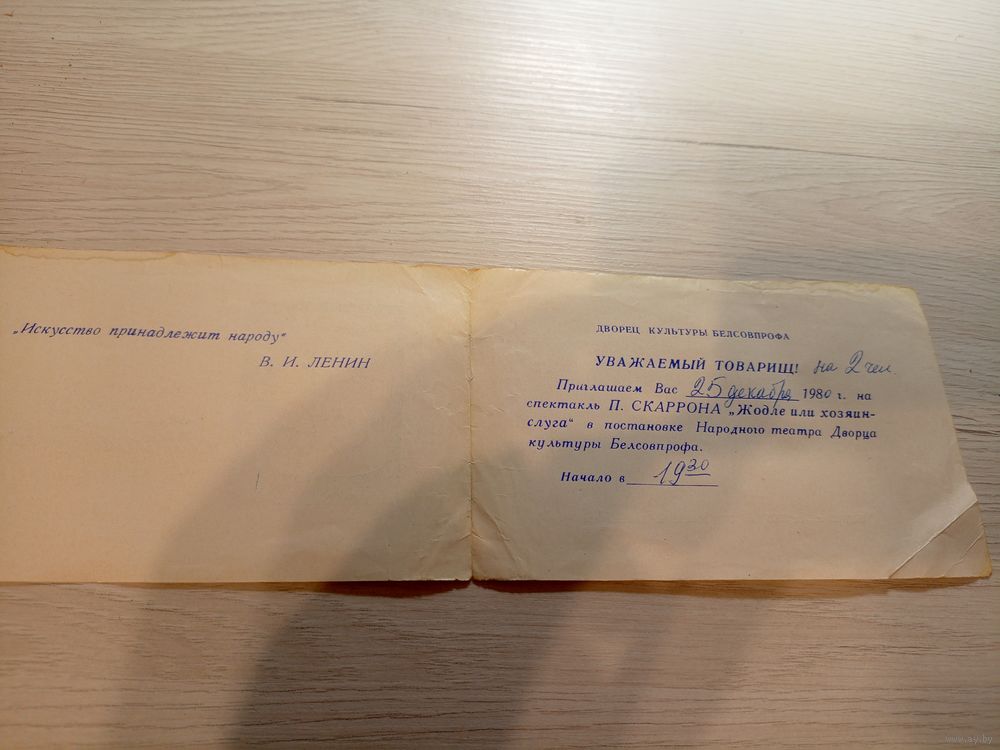 „Искусство принадлежит народу“
В. И. ЛЕНИН
ДВОРЕЦ КУЛЬТУРЫ БЕЛСОВПРОФА
УВАЖАЕМЫЙ ТОВАРИЩ! на 2 чел.
Приглашаем Вас 25 декабря 1980 г. на
спектакль П. СКАРРОНА „Жодле или хозяин-
слуга“ в постановке Народного театра Дворца
культуры Белсовпрофа.
Начало в 19 30
www.ay.by